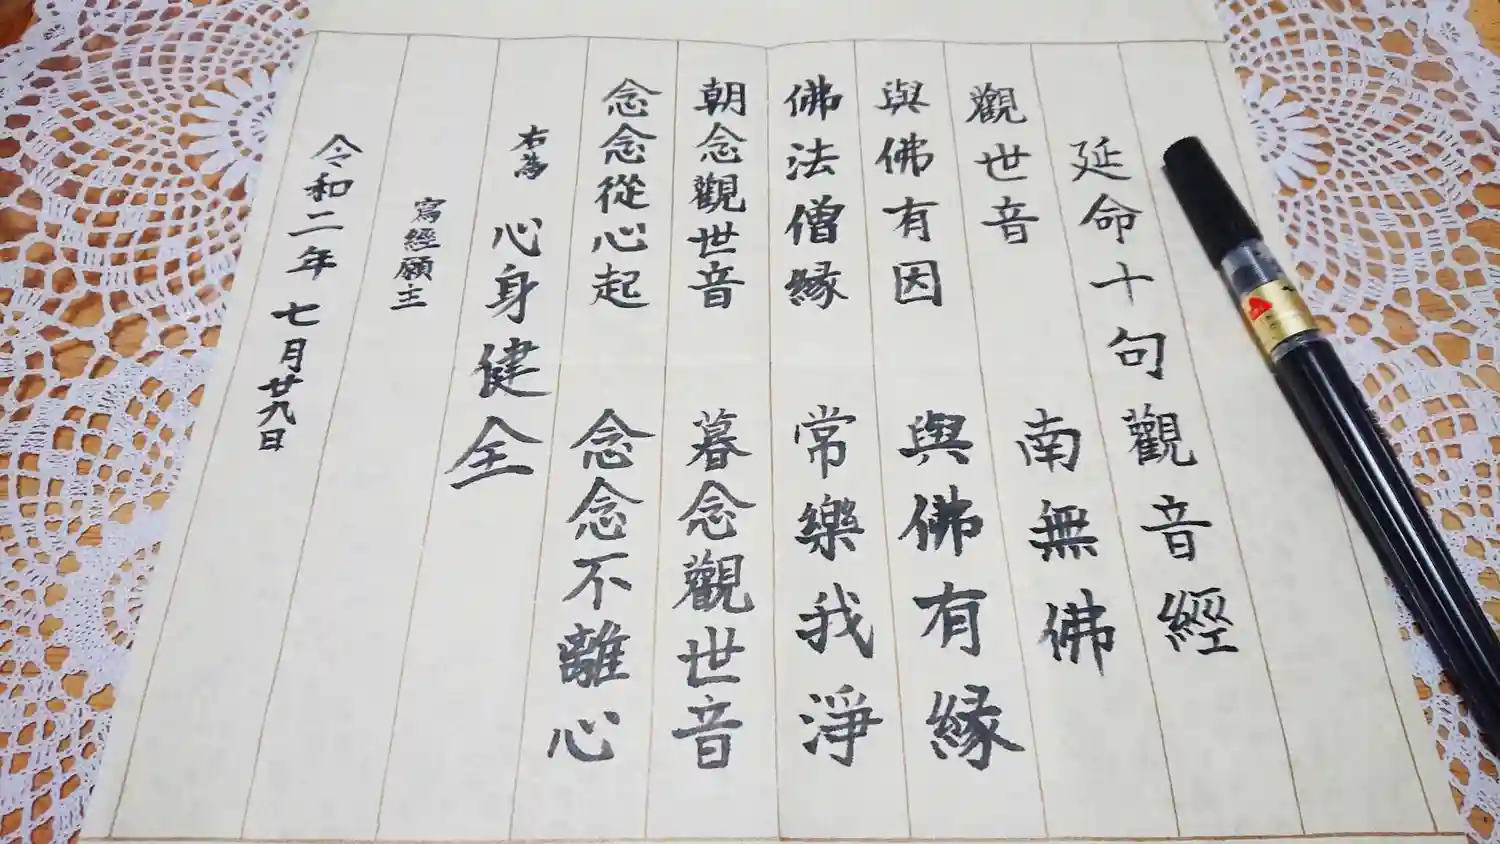 延命十句觀音經
觀世音 南無佛
與佛有因 與佛有縁
佛法僧縁 常樂我淨
朝念觀世音 暮念觀世音
念念從心起 念念不離心
右為 心身健全
寫經願主
令和二年 七月廿九日